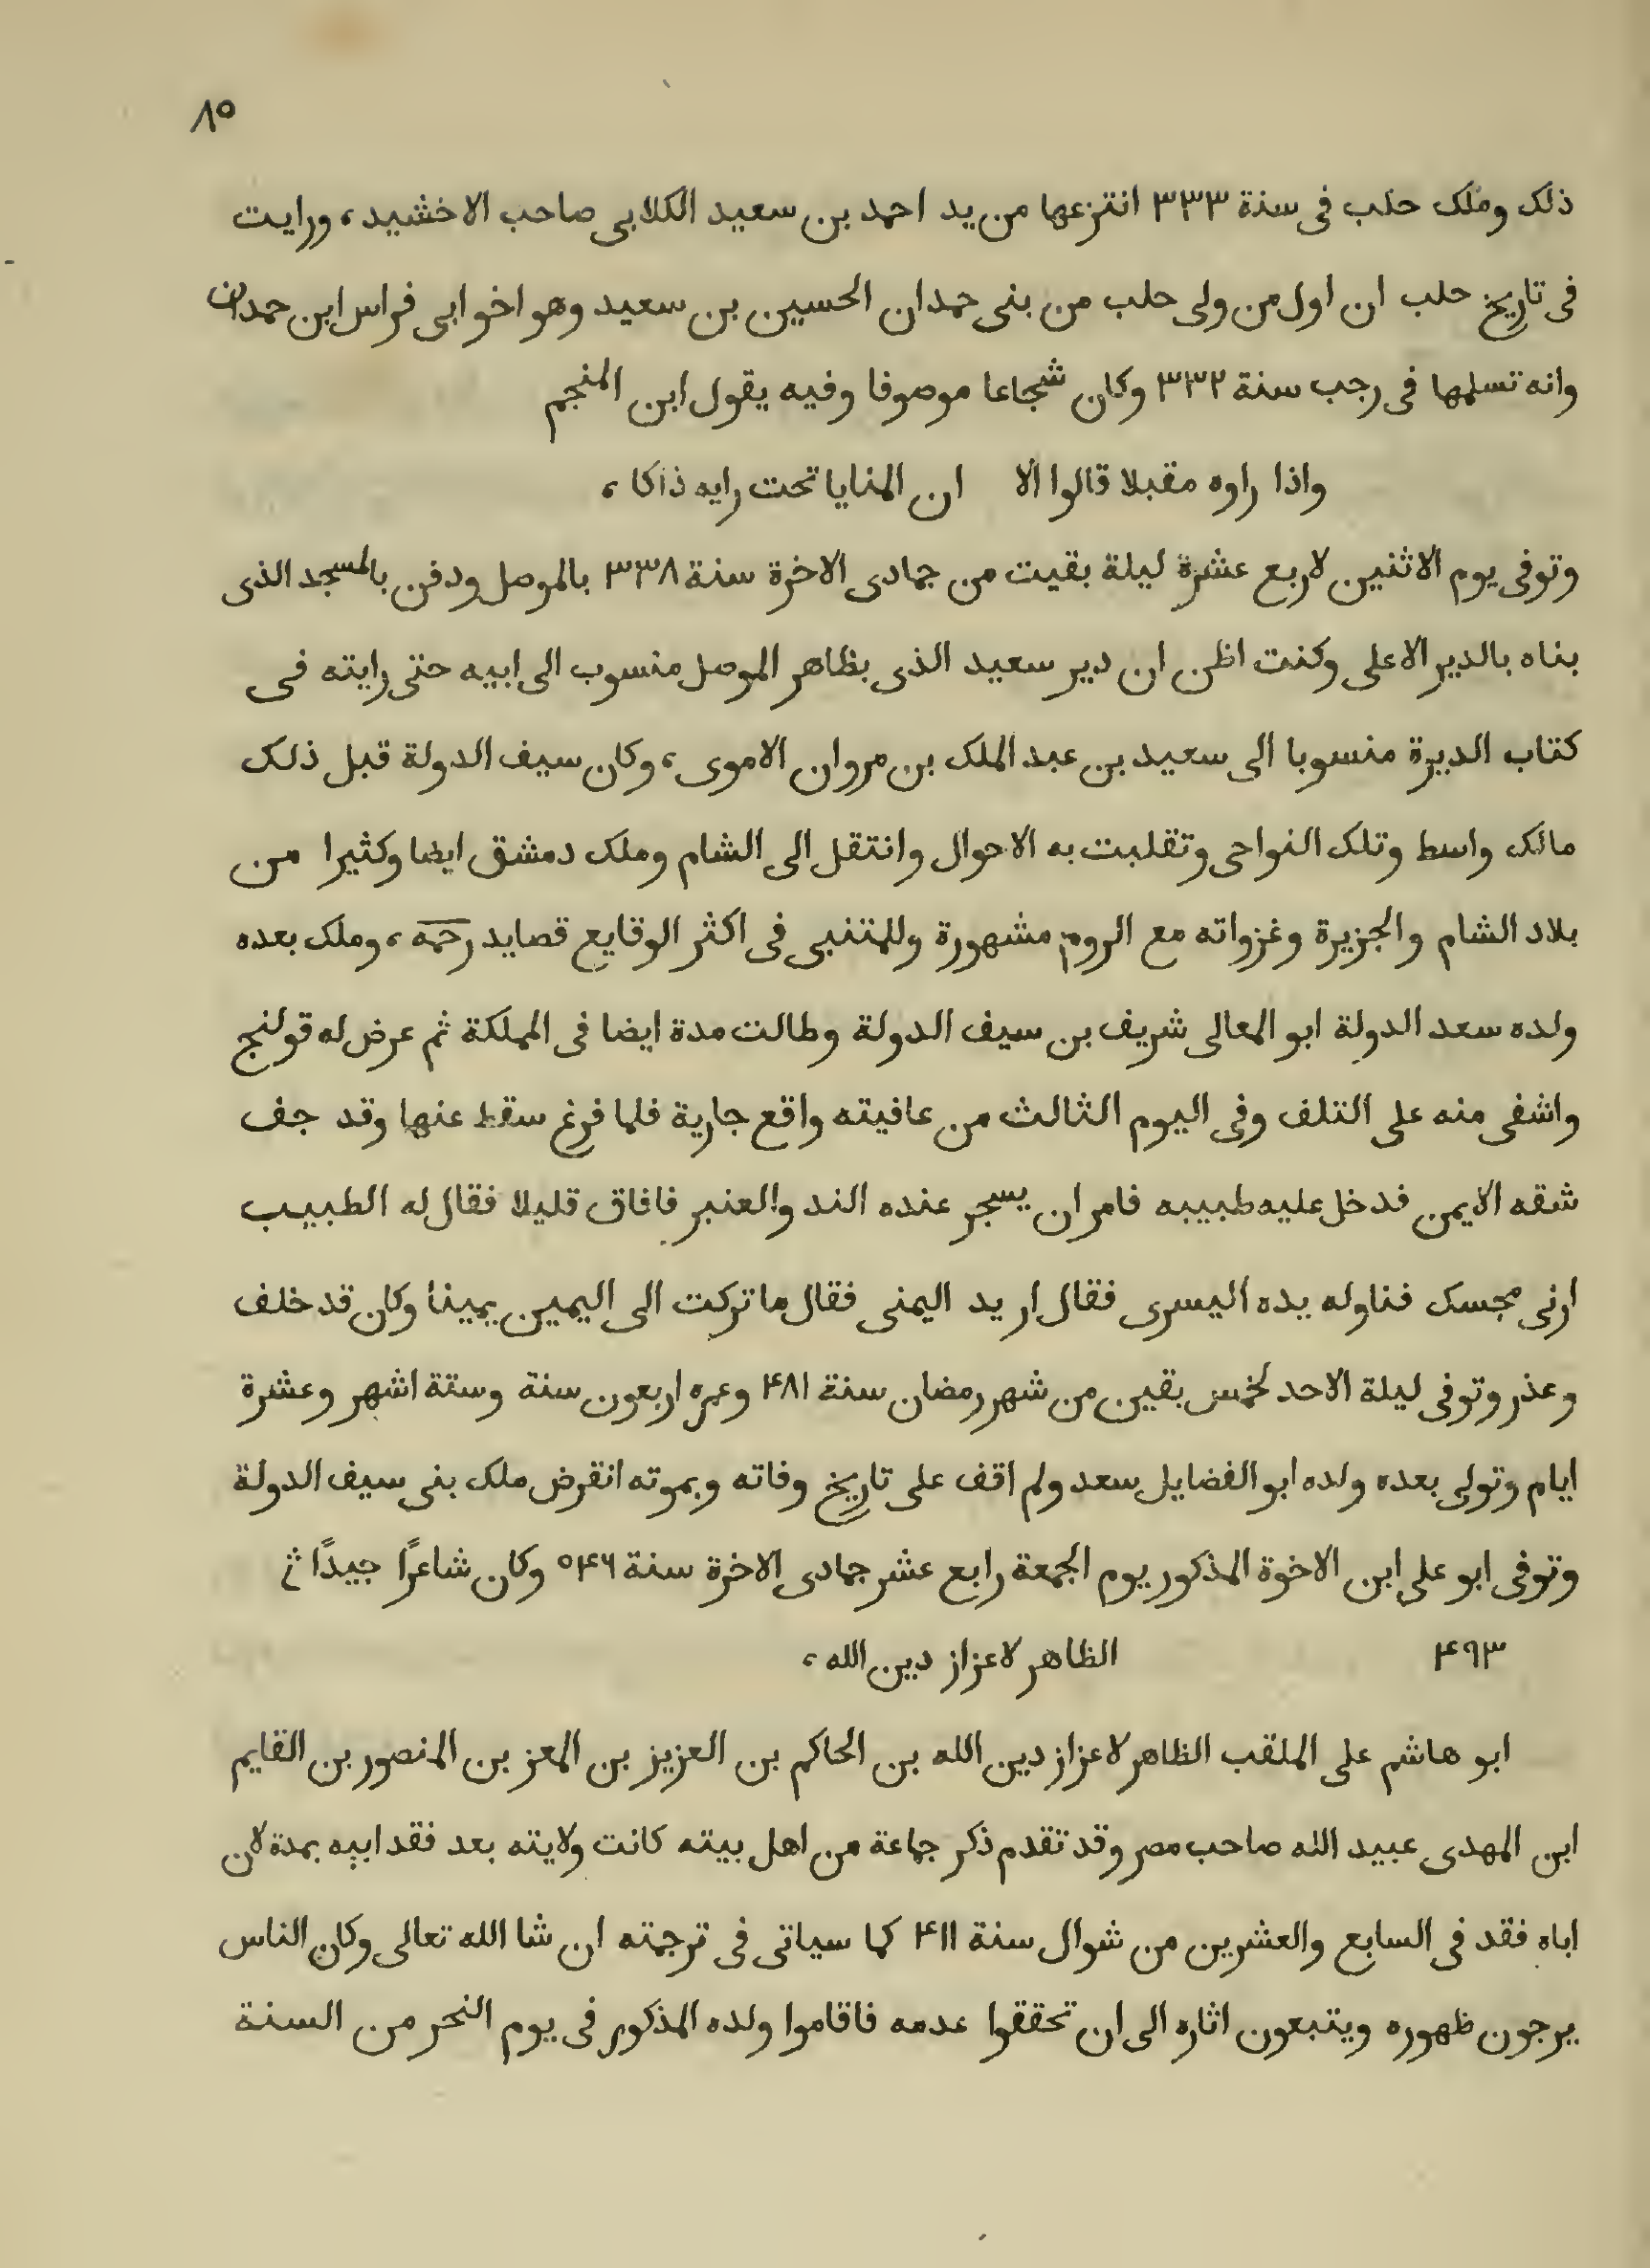 ٨٥
ذلك وملك حلب فى سنة ٣٣٣ انتزعها من يد احمد بن سعيد الكلابى صاحب الاخشيد، ورايت
فى تاريخ حلب ان اول من ولى حلب من بنى حمدان الحسين بن سعيد وهو اخو ابى فراس ابن حمدان
وانه تسلمها فى رجب سنة ٣٣٢ وكان شجاعا موصوفا وفيه يقول ابن المنجم
واذا راوه مقبلا قالوا الا ان المنايا تحت رايه ذاكا،
وتوفى يوم الاثنين لاربع عشرة ليلة بقيت من جمادى الاخرة سنة ٣٣٨ بالموصل ودفن بالمسجد الذى
بناه بالدير الاعلى وكنت اظن ان دير سعيد الذى بظاهر الموصل منسوب الى ابيه حتى رايته فى
كتاب الديرة منسوبا الى سعيد بن عبد الملك بن مروان الاموى، وكان سيف الدولة قبل ذلك
مالك واسط وتلك النواحى وتقلبت به الاحوال وانتقل الى الشام وملك دمشق ايضا وكثيرا من
بلاد الشام والجزيرة وغزواته مع الروم مشهورة وللمتنبى فى اكثر الوقايع قصايد رحمه، وملك بعده
ولده سعد الدولة ابو المعالى شريف بن سيف الدولة وطالت مدة ايضا فى المملكة ثم عرض له قولنج
واشفى منه على التلف وفى اليوم الثالث من عافيته واقع جارية فلما فرغ سقط عنها وقد جف
شقه الايمن فدخل عليه طبيبه فامر ان يسجر عنده الند والعنبر فافاق قليلا فقال له الطبيب
ارنى مجسك فناوله يده اليسرى فقال اريد اليمنى فقال ما تركت الى اليمين يمينا وكان قد خلف
وعذر وتوفى ليلة الاحد لخمس بقين من شهر رمضان سنة ۴٨١ وعمره اربعون سنة وستة اشهر وعشرة
ايام وتولى بعده ولده ابو الفضايل سعد ولم اقف على تاريخ وفاته وبموته انقرض ملك بنى سيف الدولة
وتوفى ابو على ابن الاخوة المذكور يوم الجمعة رابع عشر جمادى الاخرة سنة ٥۴۶ وكان شاعرًا جيدًا
۴٩٣ الظاهر لاعزاز دين الله،
ابو هاشم على الملقب الظاهر لاعزاز دين الله بن الحاكم بن العزيز بن المعز بن المنصور بن القايم
ابن المهدى عبيد الله صاحب مصر وقد تقدم ذكر جماعة من اهل بيته كانت ولايته بعد فقد ابيه بمدة لان
اباه فقد فى السابع والعشرين من شوال سنة ۴١١ كما سياتى فى ترجمته ان شا الله تعالى وكان الناس
يرجون ظهوره ويتبعون اثاره الى ان تحققوا عدمه فاقاموا ولده المذكور فى يوم النحر من السنة